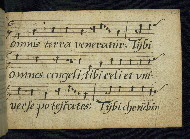 omnis terra veneratur. Tybi
omnes angeli, tibi celi et vni-
verse potestates: Tybi cherubin